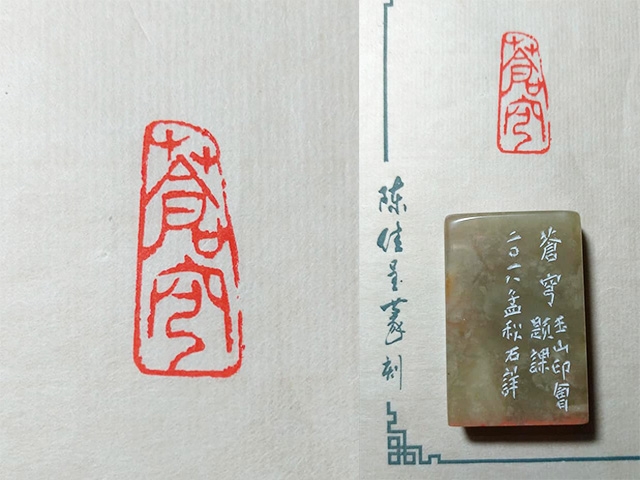 蒼穹
蒼穹
陈佳呈篆刻
蒼穹
玉山印會
題課
二〇一八孟秋石詳